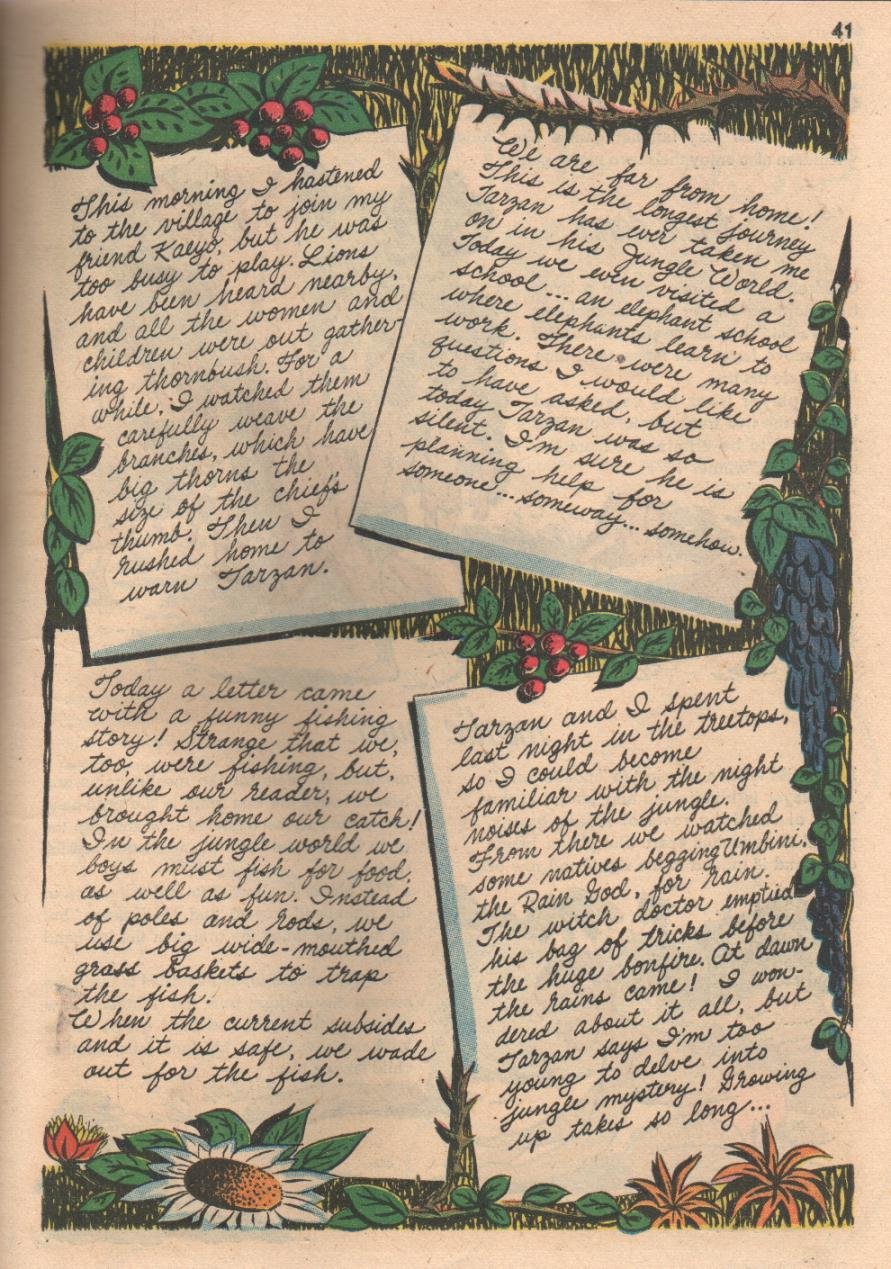 41
This morning I hastened
to the village to join my
friend Kaeyo, but he was
too busy to play. Lions
have been heard nearby,
and all the women and
children were out gather-
ing thornbush. For a
while, I watched them
carefully weave the
branches, which have
big thorns the
size of the chief's
thumb. Then I
rushed home to
warn Tarzan.
We are far from home!
This is the longest journey
Tarzan has ever taken me
on in his Jungle World.
Today we even visited a
school... an elephant school
where elephants learn to
work. There were many
questions I would like
to have asked, but
today Tarzan was so
silent. I'm sure he is
planning help for
someone... someway... somehow.
Today a letter came
with a funny fishing
story! Strange that we,
too, were fishing, but,
unlike our reader, we
brought home our catch!
In the jungle world we
boys must fish for food,
as well as fun. Instead
of poles and rods, we
use big wide-mouthed
grass baskets to trap
the fish.
When the current subsides
and it is safe, we wade
out for the fish.
Tarzan and I spent
last night in the treetops,
so I could become
familiar with the night
noises of the jungle.
From there we watched
some natives begging Umbini,
the Rain God, for rain.
The witch doctor emptied
his bag of tricks before
the huge bonfire. At dawn
the rains came! I won-
dered about it all, but
Tarzan says I'm too
young to delve into
jungle mystery! Growing
up takes so long...